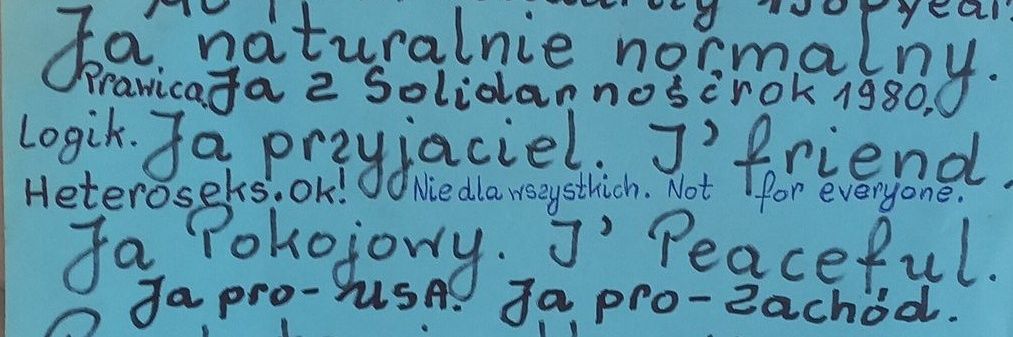 Ja naturalnie normalny.
Prawica. Ja z Solidarność rok 1980.
Logik. Ja przyjaciel. J' friend.
Heteroseks. Ok! Nie dla wszystkich. Not for everyone.
Ja Pokojowy. J' Peaceful.
Ja pro-USA. Ja pro-Zachód.